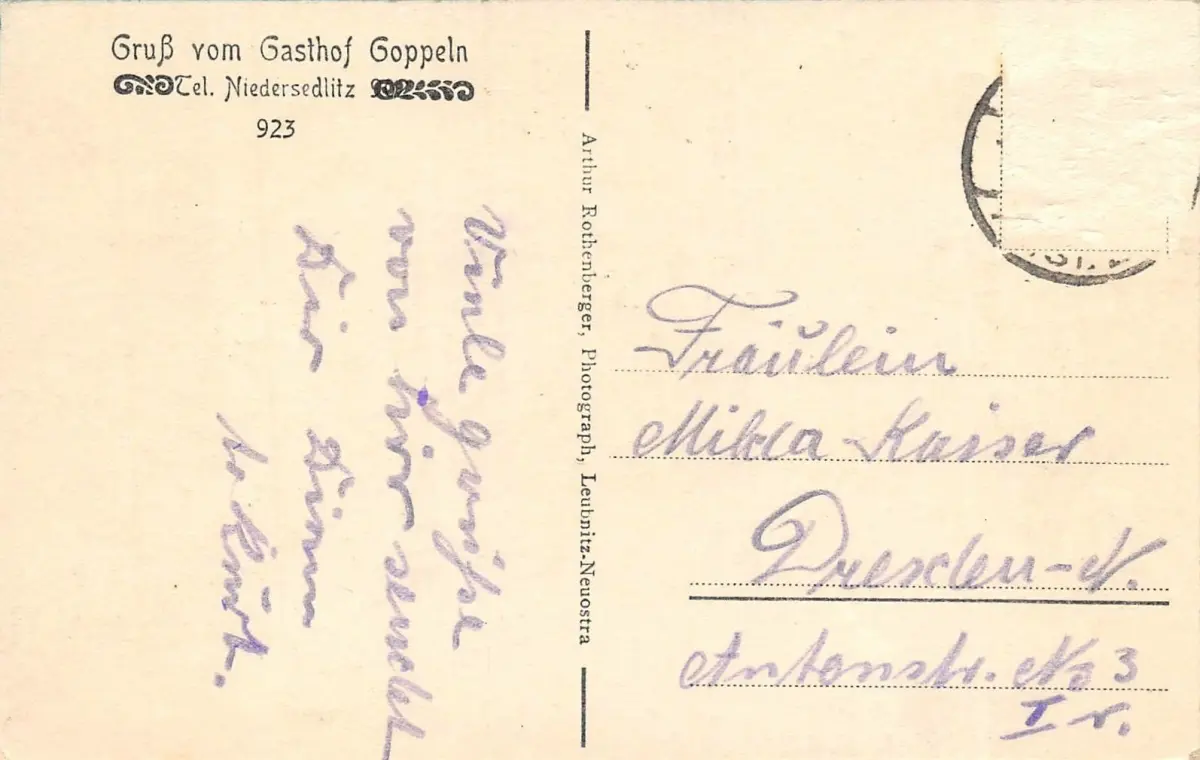 Gruß vom Gasthof Goppeln
Tel. Niedersedlitz
923
Viele grüsse
von hier sendet
Dir Dein
Kurt.
Arthur Rothenberger, Photograph, Leubnitz-Neuostra
Fräulein
Milda Kaiser
Dresden-N.
Antonstr. No 3
I r.